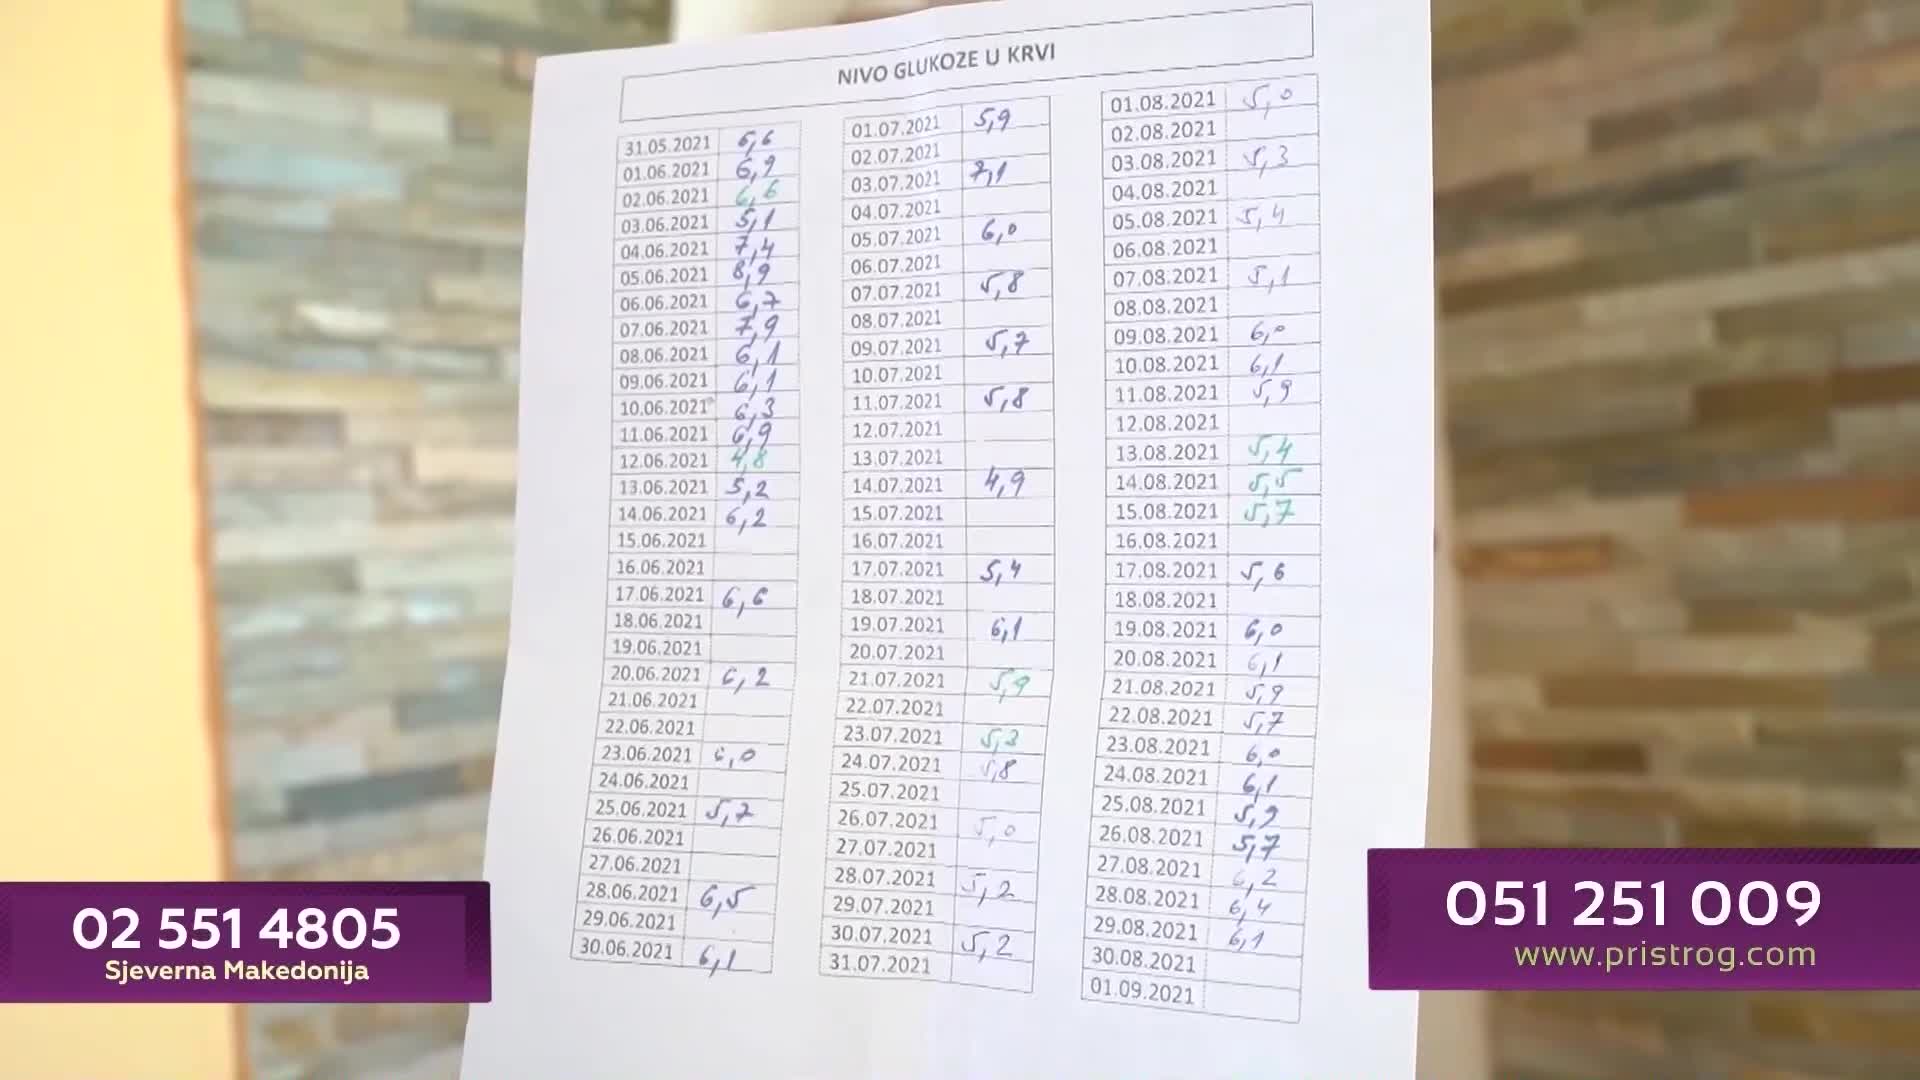 NIVO GLUKOZE U KRVI
31.05.2021 5,6
01.06.2021 6,9
02.06.2021 6,6
03.06.2021 5,1
04.06.2021 7,4
05.06.2021 8,9
06.06.2021 6,7
07.06.2021 7,9
08.06.2021 6,1
09.06.2021 6,1
10.06.2021 6,3
11.06.2021 6,9
12.06.2021 4,8
13.06.2021 5,2
14.06.2021 6,2
15.06.2021
16.06.2021
17.06.2021 6,6
18.06.2021
19.06.2021
20.06.2021 6,2
21.06.2021
22.06.2021
23.06.2021 6,0
24.06.2021
25.06.2021 5,7
26.06.2021
27.06.2021
28.06.2021 6,5
29.06.2021
30.06.2021 6,1
01.07.2021 5,9
02.07.2021
03.07.2021 7,1
04.07.2021
05.07.2021 6,0
06.07.2021
07.07.2021 5,8
08.07.2021
09.07.2021 5,7
10.07.2021
11.07.2021 5,8
12.07.2021
13.07.2021
14.07.2021 4,9
15.07.2021
16.07.2021
17.07.2021 5,4
18.07.2021
19.07.2021 6,1
20.07.2021
21.07.2021 5,9
22.07.2021
23.07.2021 5,3
24.07.2021 5,8
25.07.2021
26.07.2021 5,0
27.07.2021
28.07.2021 5,2
29.07.2021
30.07.2021 5,2
31.07.2021
01.08.2021 5,0
02.08.2021
03.08.2021 5,3
04.08.2021
05.08.2021 5,4
06.08.2021
07.08.2021 5,1
08.08.2021
09.08.2021 6,0
10.08.2021 6,1
11.08.2021 5,9
12.08.2021
13.08.2021 5,4
14.08.2021 5,5
15.08.2021 5,7
16.08.2021
17.08.2021 5,6
18.08.2021
19.08.2021 6,0
20.08.2021 6,1
21.08.2021 5,9
22.08.2021 5,7
23.08.2021 6,0
24.08.2021 6,1
25.08.2021 5,9
26.08.2021 5,7
27.08.2021 6,2
28.08.2021 6,4
29.08.2021 6,1
30.08.2021
01.09.2021
02 551 4805
Sjeverna Makedonija
051 251 009
www.pristrog.com